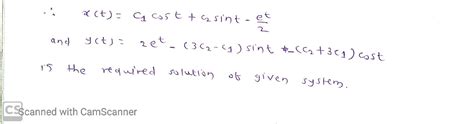 ∴ x(t) = c₁ cos t + c₂ sin t - e^t/2
and y(t) = 2e^t - (3c₂ - c₁) sin t - (c₂ + 3c₁) cos t
is the required solution of given system.
CS Scanned with CamScanner